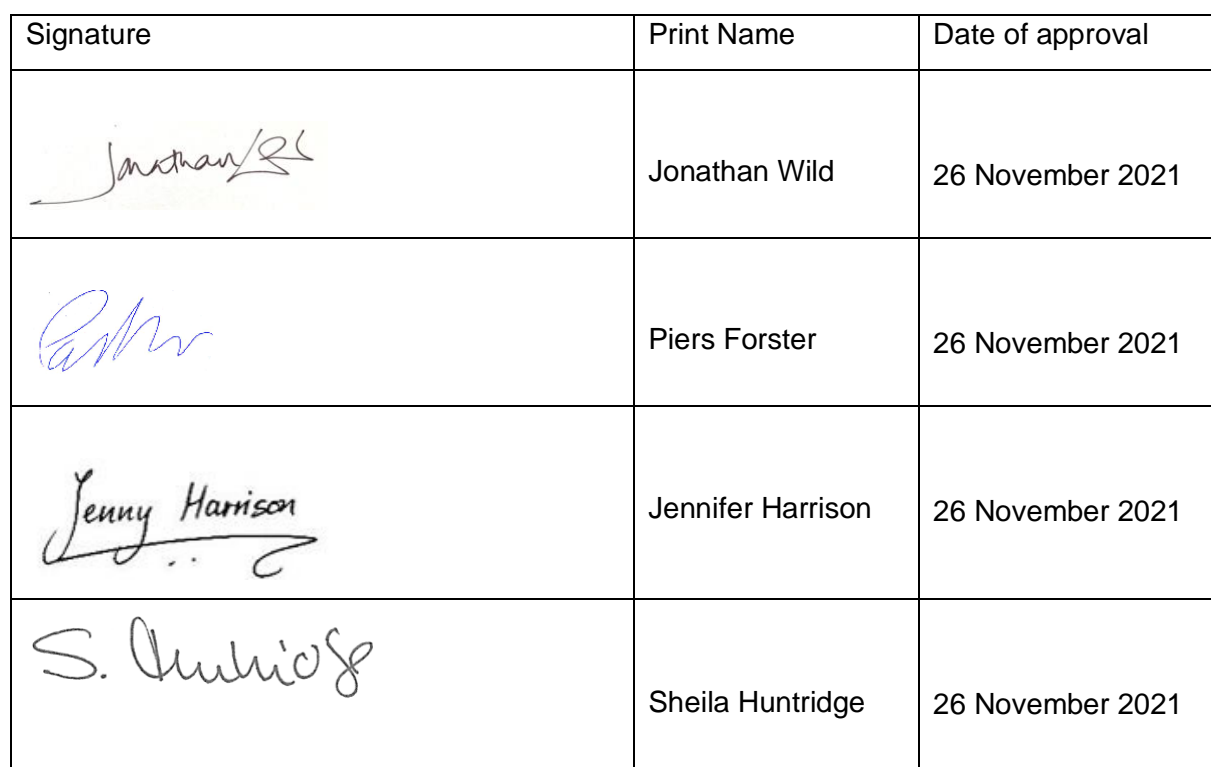 Signature Print Name Date of approval
Jonathan Wild 26 November 2021
Piers Forster 26 November 2021
Jenny Harrison Jennifer Harrison 26 November 2021
S. Sheila Huntridge 26 November 2021